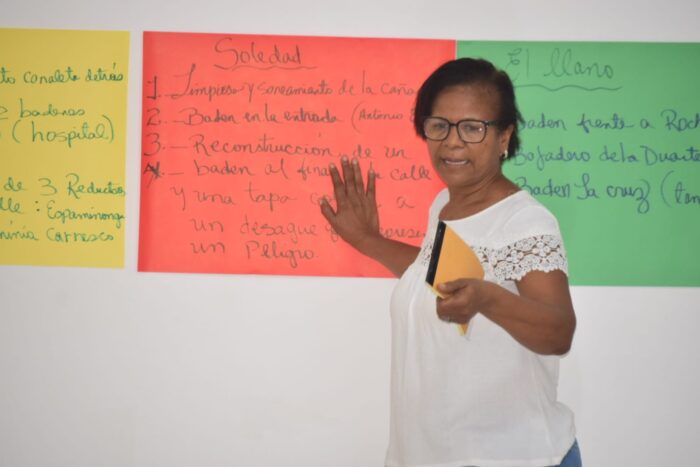 to canaleta detrás
2 badenes
(hospital)
de 3 Reductores
lle : Espaminonda
minia Carrasco
Soledad
1._ Limpieza y saneamiento de la caña
2._ Baden en la entrada (Antonio
3._ Reconstrucción de un
baden al final calle
y una tapa a
un desague
un Peligro.
El Llano
Baden frente a Roch
Bofadero de la Duarte
Baden La cruz